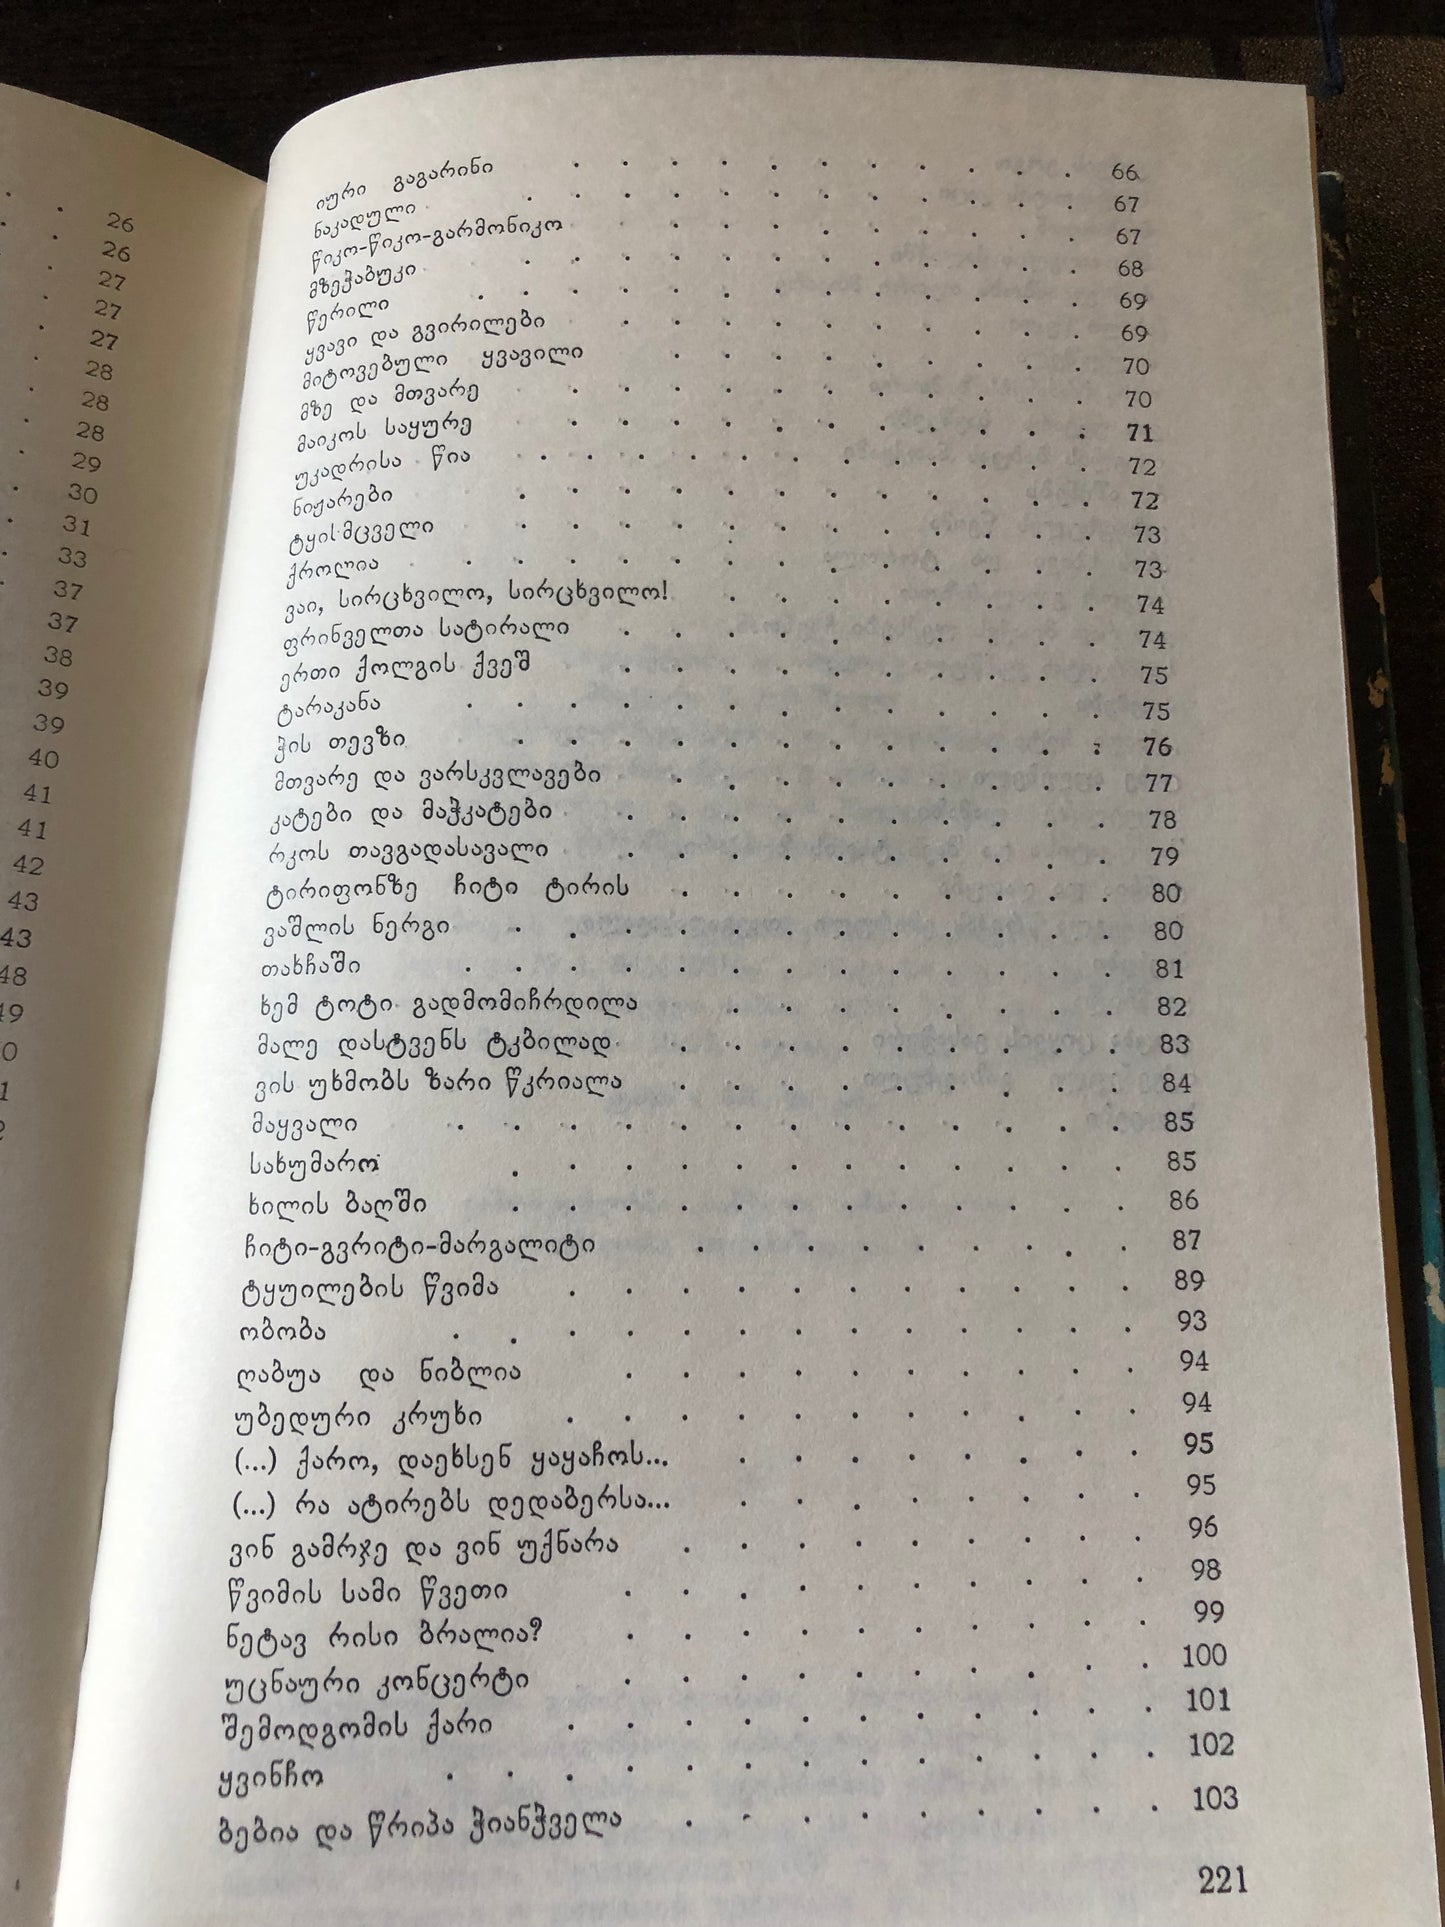 26
26
27
27
27
28
28
28
29
30
31
33
37
37
38
39
39
40
41
41
42
43
43
48
49
იური გაგარინი . . . . . . . . . . . 66
ნაკადული . . . . . . . . . . . . 67
წიკო-წიკო-გარმონიკო . . . . . . . . . 67
მზეჭაბუკი . . . . . . . . . . . . 68
წერილი . . . . . . . . . . . . . 69
ყვავი და გვირილები . . . . . . . . . . 69
მიტოვებული ყვავილი . . . . . . . . . 70
მზე და მთვარე . . . . . . . . . . . 70
მაიკოს საყურე . . . . . . . . . . . 71
უკადრისა წია . . . . . . . . . . . 72
ნიჟარები . . . . . . . . . . . . 72
ტყის მცველი . . . . . . . . . . . . 73
ქროლია . . . . . . . . . . . . . 73
ვაი, სირცხვილო, სირცხვილო! . . . . . . . . 74
ფრინველთა სატირალი . . . . . . . . . . 74
ერთი ქოლგის ქვეშ . . . . . . . . . . 75
ტარაკანა . . . . . . . . . . . . . 75
ჭის თევზი . . . . . . . . . . . . 76
მთვარე და ვარსკვლავები . . . . . . . . . 77
კატები და მაჭკატები . . . . . . . . . . 78
რკოს თავგადასავალი . . . . . . . . . . 79
ტირიფონზე ჩიტი ტირის . . . . . . . . . 80
ვაშლის ნერგი . . . . . . . . . . . . 80
თახჩაში . . . . . . . . . . . . . 81
ხემ ტოტი გადმომიჩრდილა . . . . . . . . 82
მალე დასტვენს ტკბილად . . . . . . . . . 83
ვის უხმობს ზარი წკრიალა . . . . . . . . . 84
მაყვალი . . . . . . . . . . . . . 85
სახუმარო . . . . . . . . . . . . 85
ხილის ბაღში . . . . . . . . . . . . 86
ჩიტი-გვრიტი-მარგალიტი . . . . . . . . . 87
ტყუილების წვიმა . . . . . . . . . . . 89
ობობა . . . . . . . . . . . . . 93
ღაბუა და ნიბლია . . . . . . . . . . 94
უბედური კრუხი . . . . . . . . . . . 94
(...) ქარო, დაეხსენ ყაყაჩოს... . . . . . . . . 95
(...) რა ატირებს დედაბერსა... . . . . . . . . 95
ვინ გამრჯე და ვინ უქნარა . . . . . . . . . 96
წვიმის სამი წვეთი . . . . . . . . . . 98
ნეტავ რისი ბრალია? . . . . . . . . . . 99
უცნაური კონცერტი . . . . . . . . . . 100
შემოდგომის ქარი . . . . . . . . . . . 101
ყვინჩო . . . . . . . . . . . . . 102
ბებია და წრიპა ჭიანჭველა . . . . . . . . . 103
221